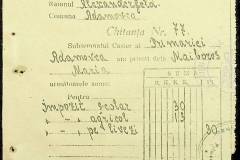 Raionul Alexanderfeld.
Comuna Adamovca
Chitanța Nr. 77
Subsemnatul Casier al Primăriei
Adamovca am primit dela
Maria
următoarele sume:
SUMA
Pentru
Impozit școlar 30
" agricol 13
" pe livezi